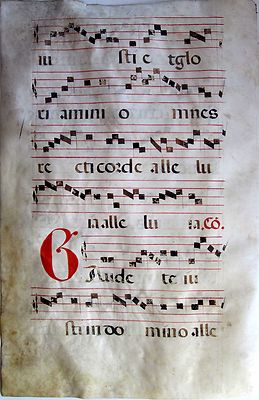 iu sti e tglo
ri amini o mnes
re cti corde alle lu
ia alle lu ia, Cõ.
GAude te iu
sti in do mino alle